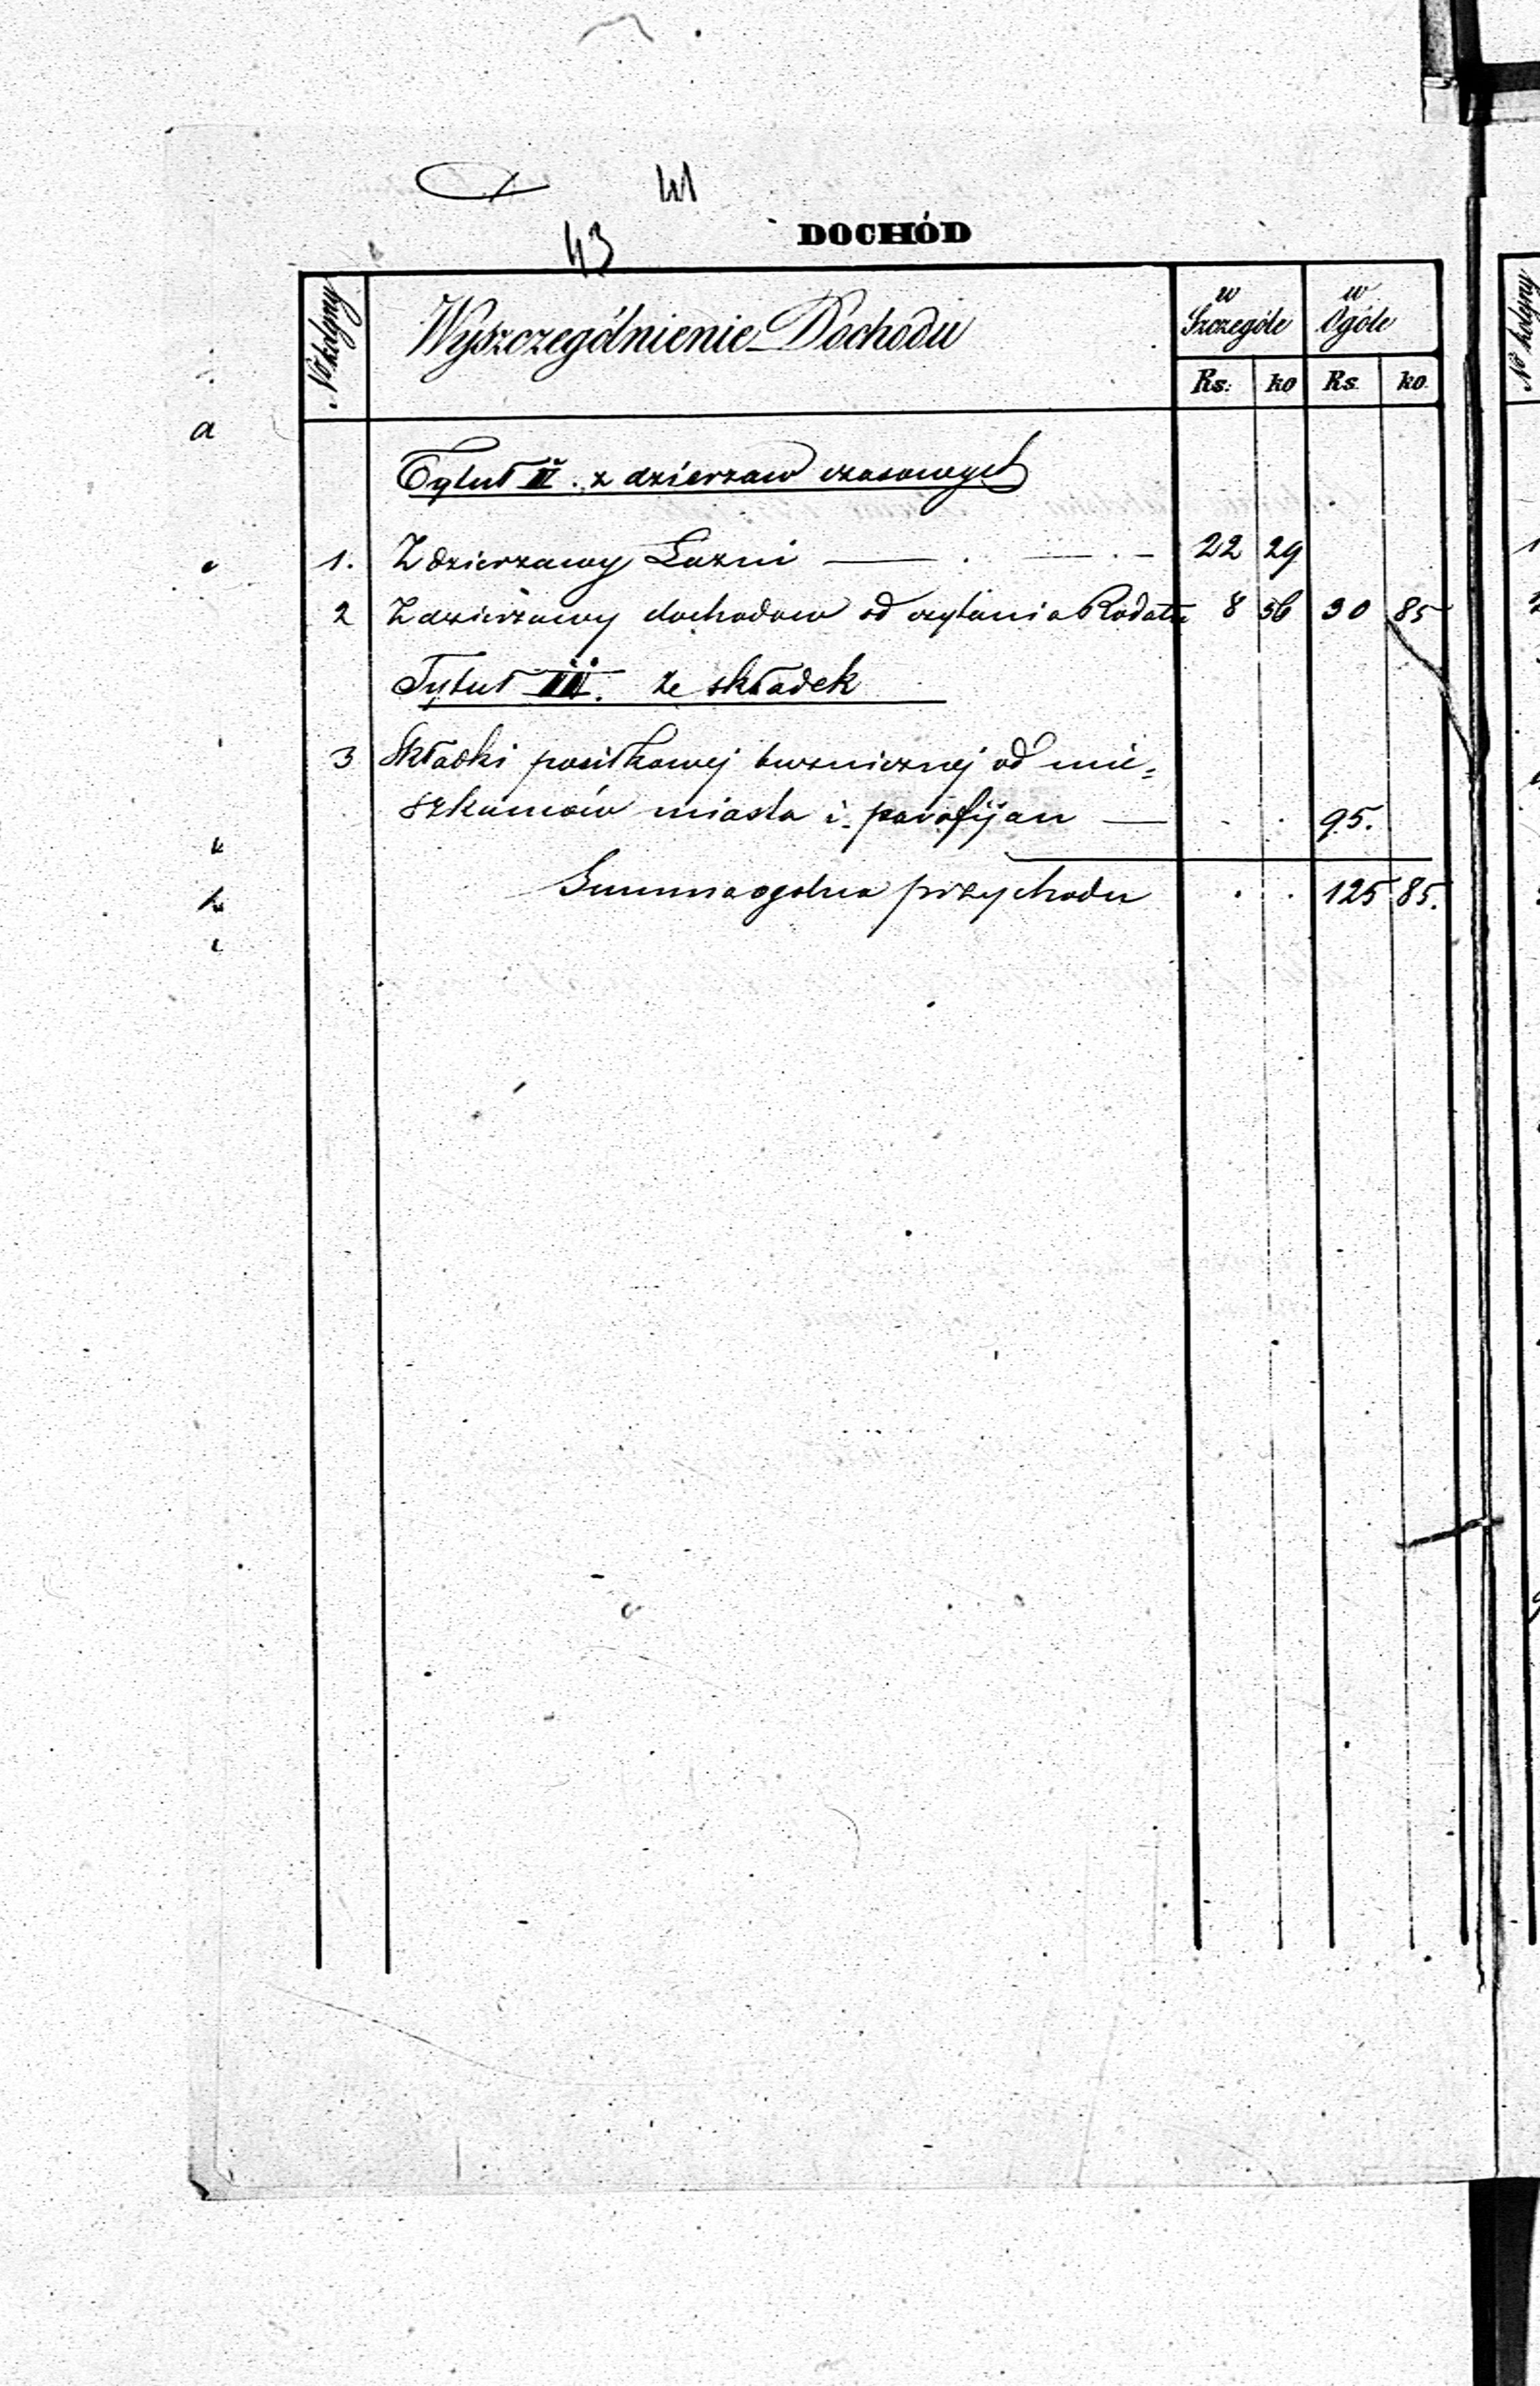 41
43
DOCHÓD
No kolejny Wyszczególnienie Dochodu w Szczególe w Ogóle
Rs: ko Rs. ko.
a
Tytuł II. z dzierzaw czasowych
1. Z dzierzawy Łazni — . — . — 22 29
2 Z dzierzawy dochodow od czytania Rodału 8 56 30 85
Tytuł III. ze składek
3 Składki posiłkowej bużnicznej od mie=
szkancow miasta i parafijan — . . 95.
Summa ogolna przychodu . . 125 85.
No kolejny